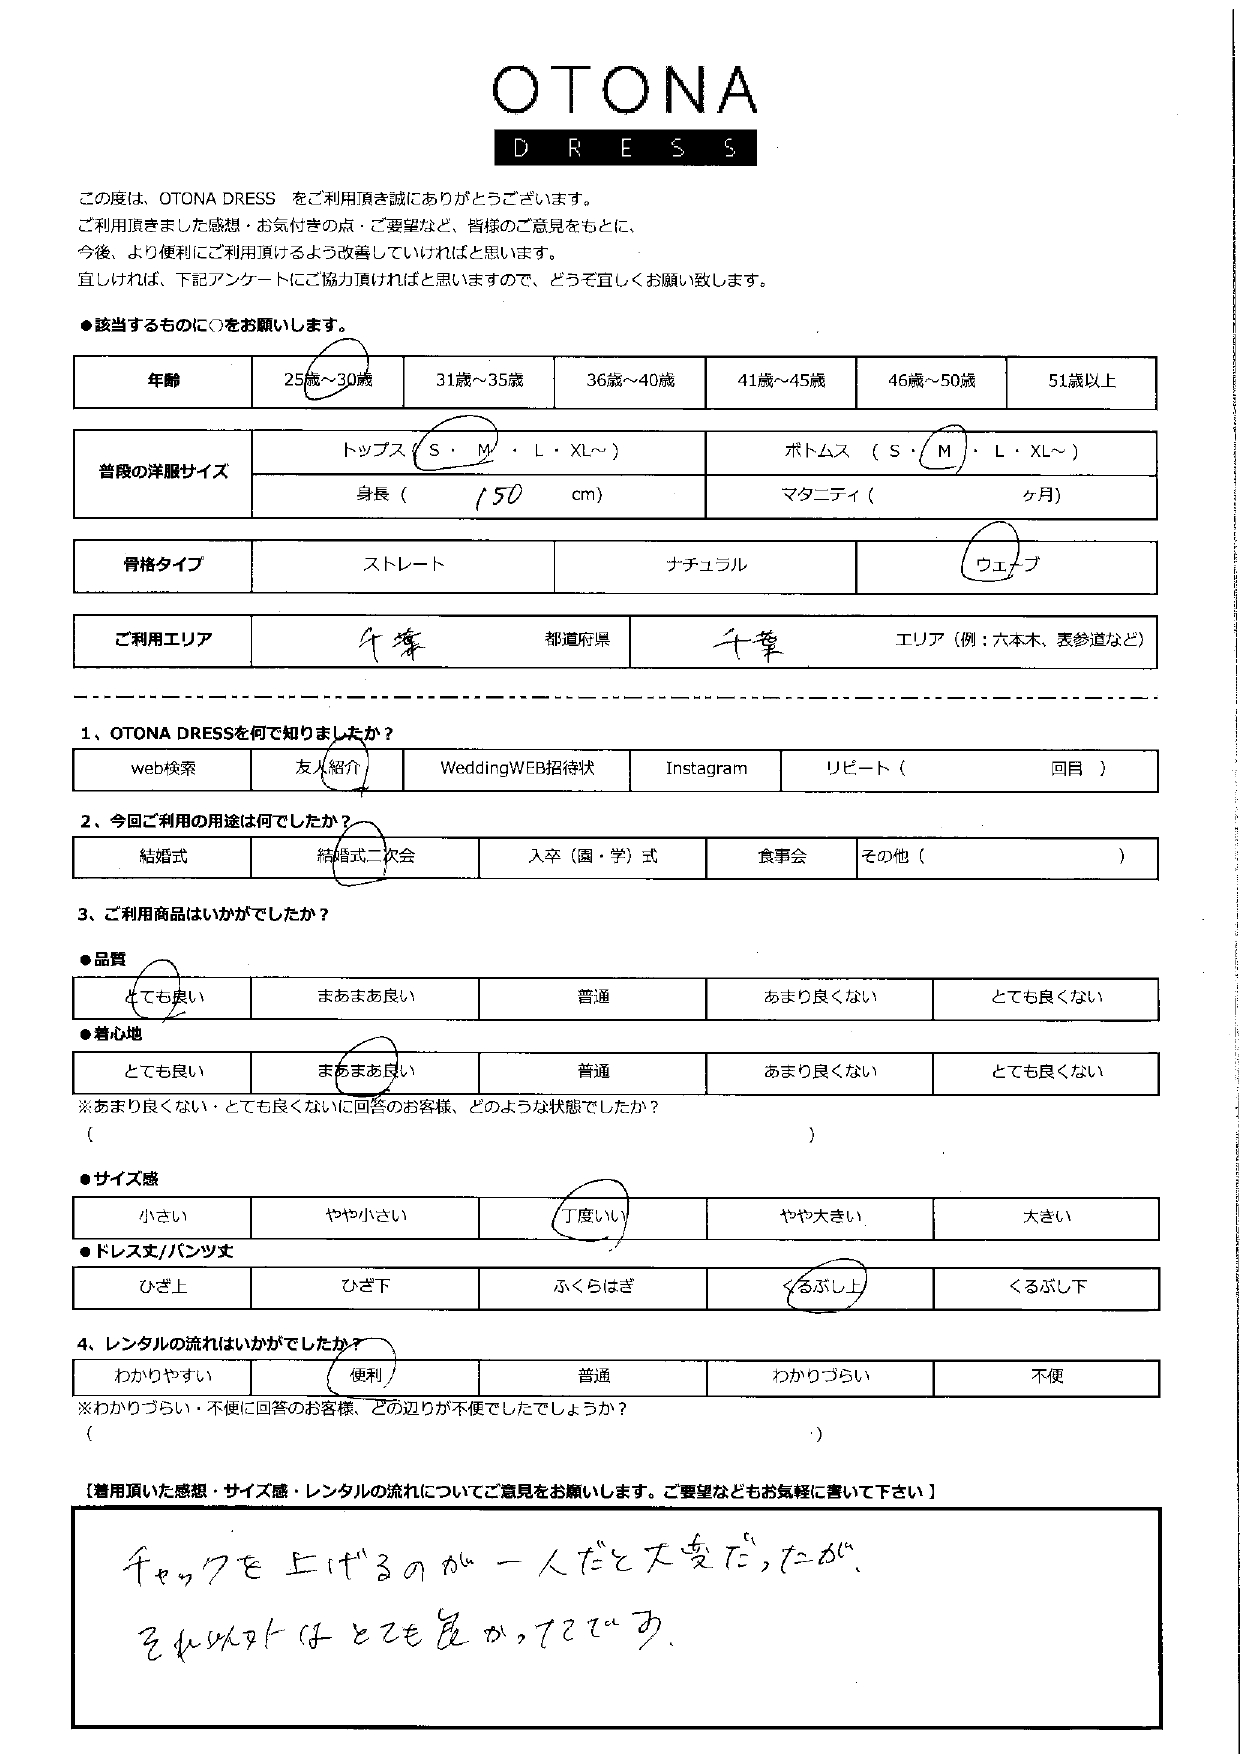 OTONA
DRESS
この度は、OTONA DRESS　をご利用頂き誠にありがとうございます。
ご利用頂きました感想・お気付きの点・ご要望など、皆様のご意見をもとに、
今後、より便利にご利用頂けるよう改善していければと思います。
宜しければ、下記アンケートにご協力頂ければと思いますので、どうぞ宜しくお願い致します。
●該当するものに○をお願いします。
年齢 25歳～30歳 31歳～35歳 36歳～40歳 41歳～45歳 46歳～50歳 51歳以上
普段の洋服サイズ
トップス ( S ・ M ・ L ・ XL～ ) ボトムス ( S ・ M ・ L ・ XL～ )
身長 ( 150 cm) マタニティ ( ヶ月)
骨格タイプ ストレート ナチュラル ウェーブ
ご利用エリア 千葉 都道府県 千葉 エリア（例：六本木、表参道など）
1、OTONA DRESSを何で知りましたか？
web検索 友人紹介 WeddingWEB招待状 Instagram リピート ( 回目 )
2、今回ご利用の用途は何でしたか？
結婚式 結婚式二次会 入卒（園・学）式 食事会 その他 ( )
3、ご利用商品はいかがでしたか？
●品質
とても良い まあまあ良い 普通 あまり良くない とても良くない
●着心地
とても良い まあまあ良い 普通 あまり良くない とても良くない
※あまり良くない・とても良くないに回答のお客様、どのような状態でしたか？
( )
●サイズ感
小さい やや小さい 丁度いい やや大きい 大きい
●ドレス丈/パンツ丈
ひざ上 ひざ下 ふくらはぎ くるぶし上 くるぶし下
4、レンタルの流れはいかがでしたか？
わかりやすい 便利 普通 わかりづらい 不便
※わかりづらい・不便に回答のお客様、どの辺りが不便でしたでしょうか？
( )
【着用頂いた感想・サイズ感・レンタルの流れについてご意見をお願いします。ご要望などもお気軽に書いて下さい】
チャックを上げるのが一人だと大変だったが、
それ以外はとても良かっててです.